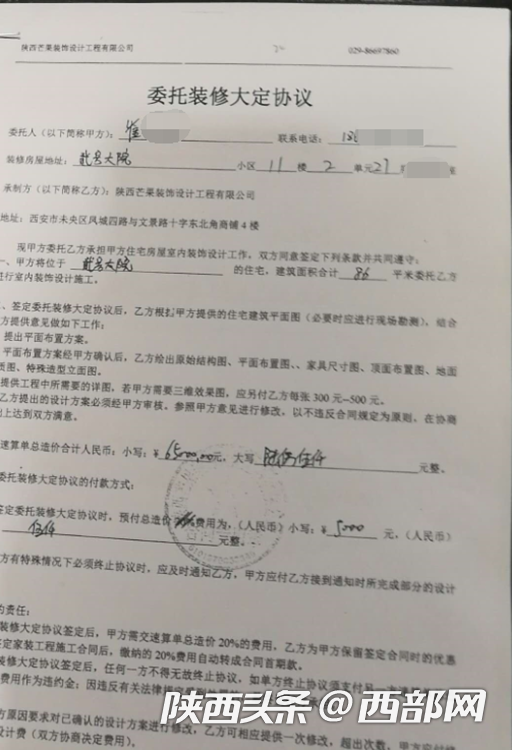 陕西芒果装饰设计工程有限公司 029-86697860
委托装修大定协议
委托人（以下简称甲方）：崔 联系电话：
装修房屋地址：龙大院 小区 11 楼 2 单元 27
承制方（以下简称乙方）：陕西芒果装饰设计工程有限公司
地址：西安市未央区凤城四路与文景路十字东北角商铺4楼
现甲方委托乙方承担甲方住宅房屋室内装饰设计工作，双方同意签定下列条款并共同遵守：
一、甲方将位于 大院 的住宅，建筑面积合计 86 平米委托乙方
进行室内装饰设计施工。
、签定委托装修大定协议后，乙方根据甲方提供的住宅建筑平面图（必要时应进行现场勘测），结合
方提供意见做如下工作：
提出平面布置方案。
平面布置方案经甲方确认后，乙方绘出原始结构图、平面布置图、、家具尺寸图、顶面布置图、地面
质图、特殊造型立面图。
提供工程中所需要的详图，若甲方需要三维效果图，应另付乙方每张 300 元-500 元。
乙方提出的设计方案必须经甲方审核。参照甲方意见进行修改，以不违反合同规定为原则，在协商
上达到双方满意。
速算单总造价合计人民币：小写：￥ 65000.00元，大写 陆万伍仟 元整。
委托装修大定协议的付款方式：
定委托装修大定协议时，预付总造价 费用为，（人民币）小写：￥ 5000 元，（人民币）
伍仟 元整。
方有特殊情况下必须终止协议时，应及时通知乙方，甲方应付乙方接到通知时所完成部分的设计
的责任：
装修大定协议签定后，甲方需交速算单总造价 20%的费用，乙方为甲方保留签定合同时的优惠
定家装工程施工合同后，缴纳的 20%费用自动转成合同首期款。
装修大定协议签定后，任何一方不得无故终止协议，如单方终止协议须支付另一
费用作为违约金；因违反有关法律
方原因要求对已确认的设计方案进行修改，乙方可相应提供一次修改，超出次数，甲方应
计费（双方协商决定费用）。
陕西头条 @西部网